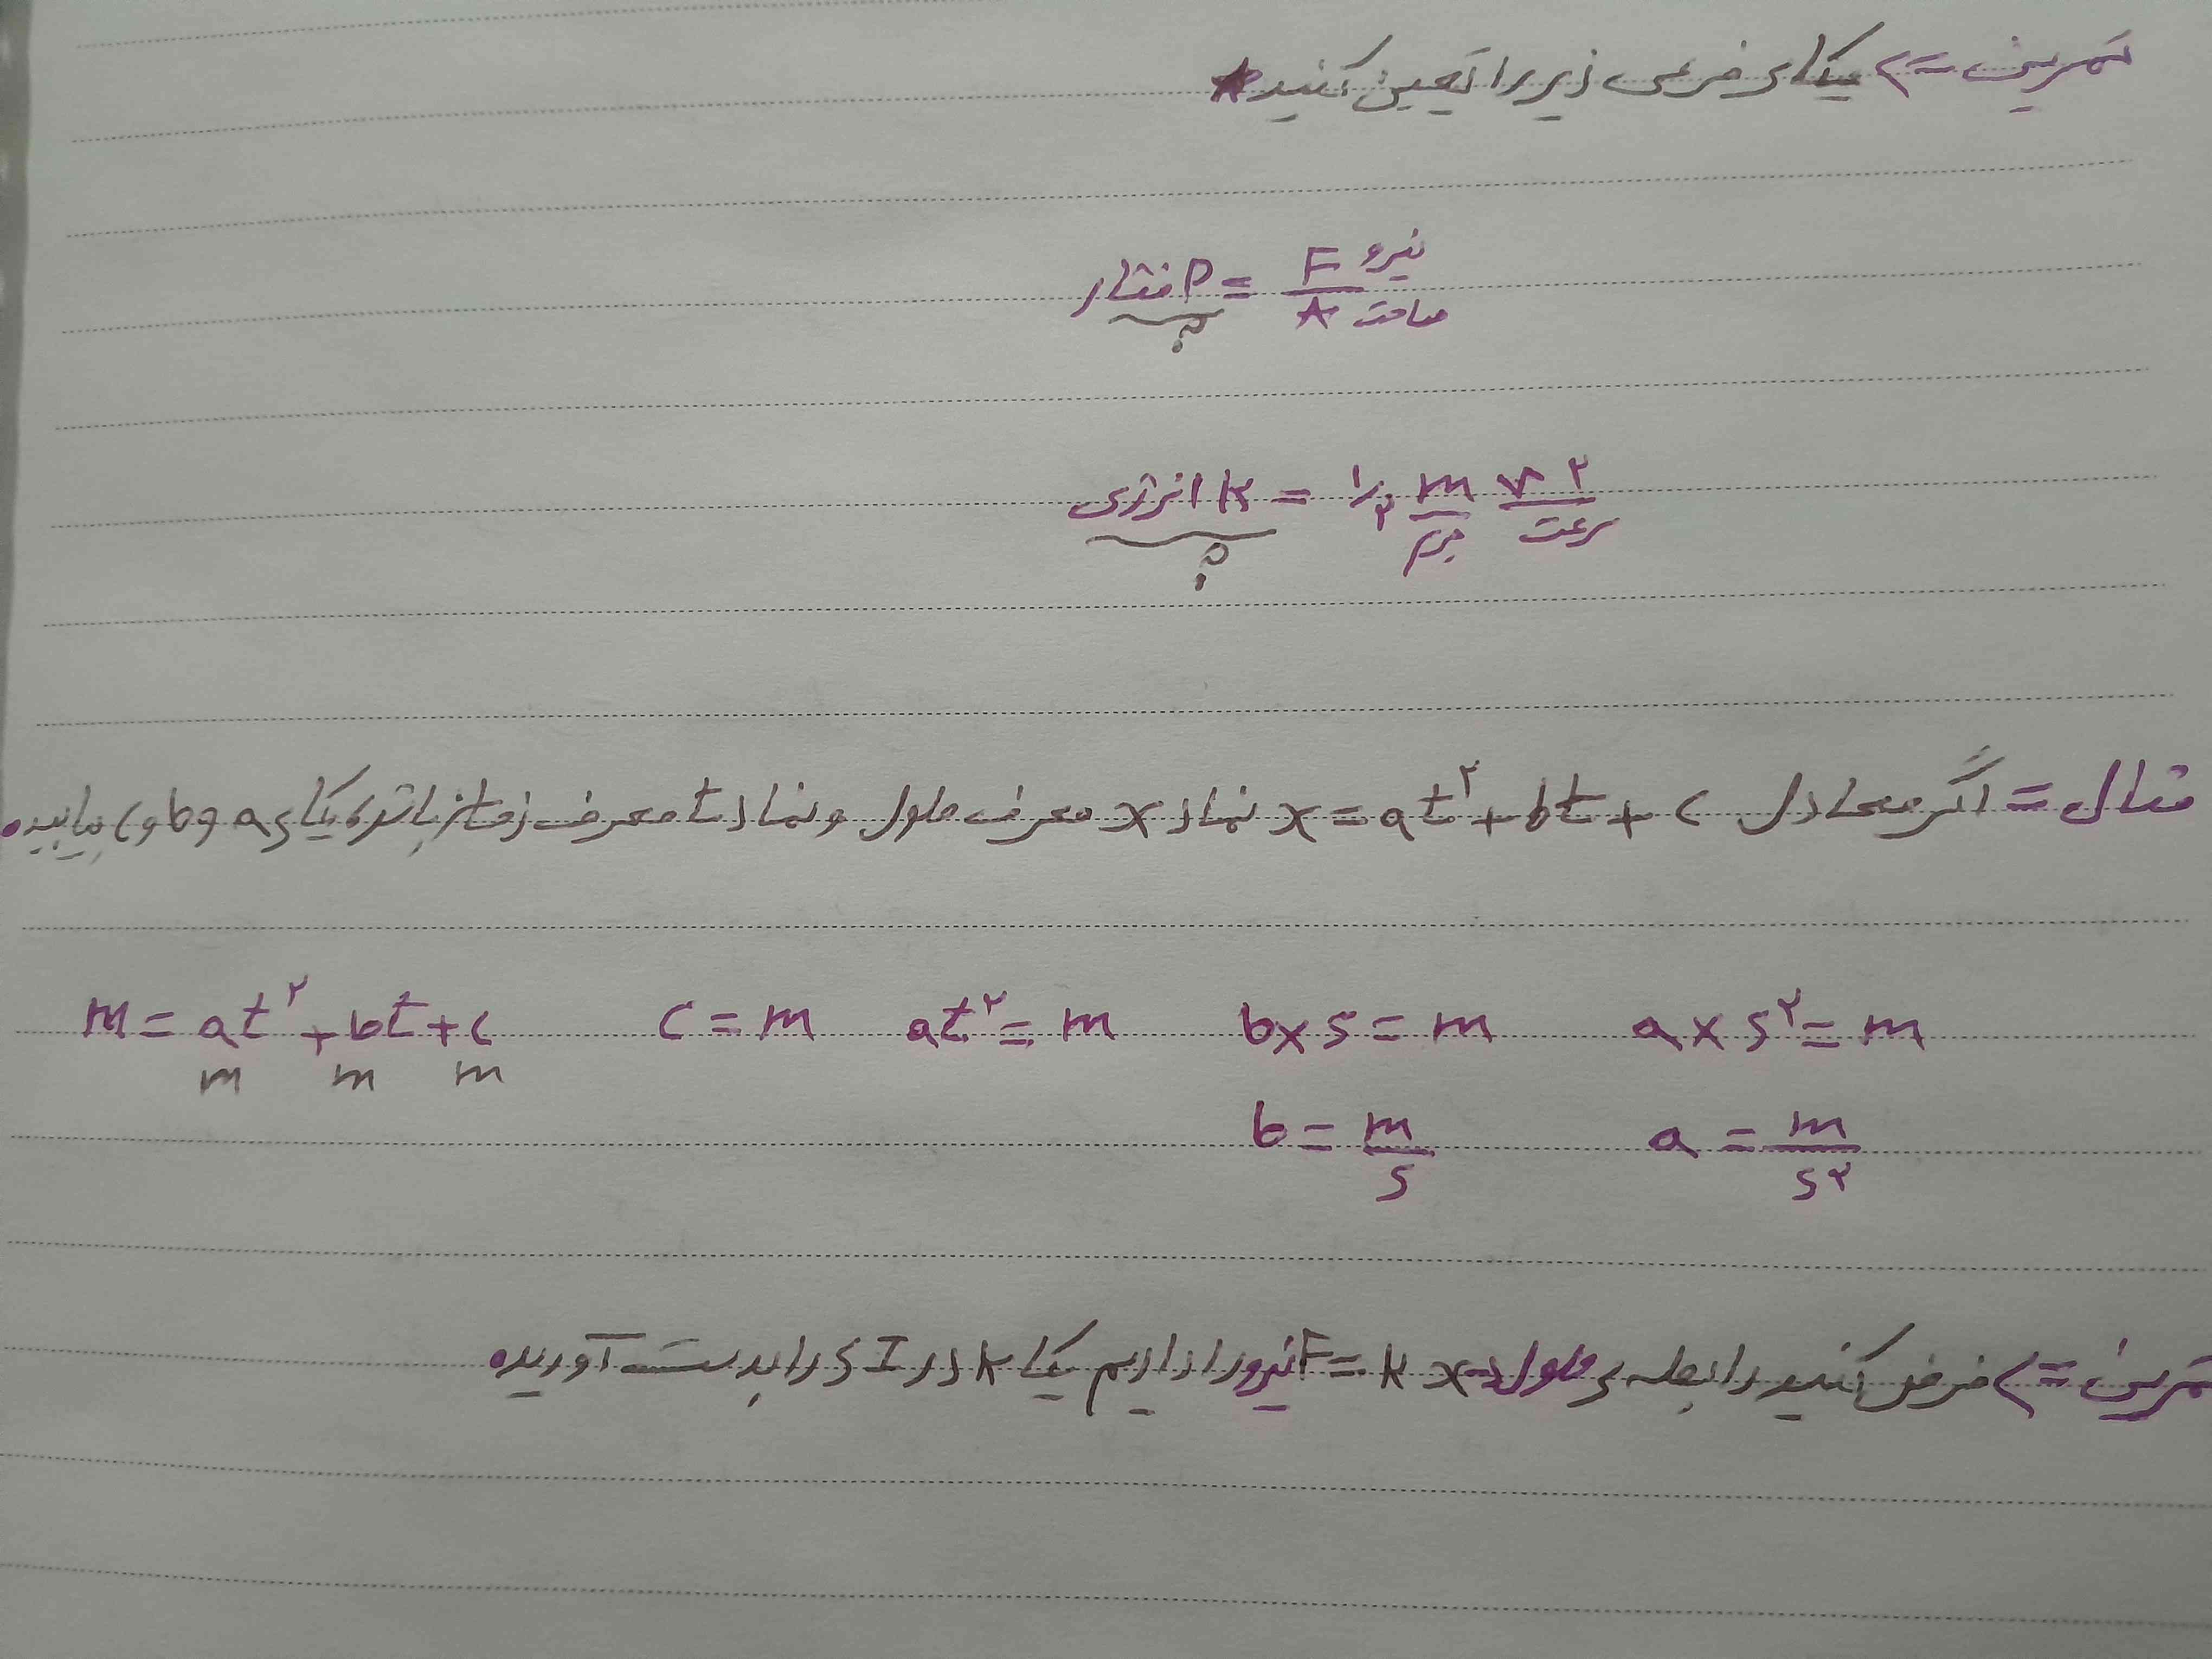 تمرین => یکای فرعی زیر را تعیین کنید*
فشار P = F نیرو / A مساحت
؟
انرژی K = ۱/۲ m v^۲
جرم سرعت
؟
مثال = اگر معادل x = at^۲ + bt + c نماد x معرف طول و نماد t معرف زمان باشد، یکای a و b و c بیابید.
m = at^۲ + bt + c    c = m    at^۲ = m    b×s = m    a×s^۲ = m
m m m
b = m/s    a = m/s^۲
تمرین => فرض کنید رابطه ی F = k x طول نیرو را داریم یکا k در SI را بدست آورید.